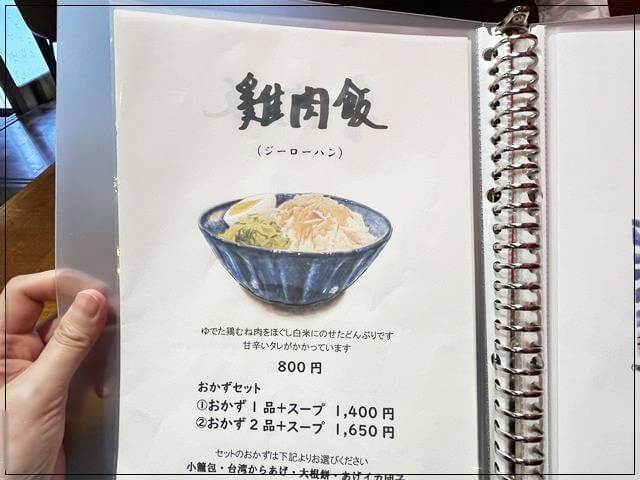 雞肉飯
(ジーローハン)
ゆでた鶏むね肉をほぐし白米にのせたどんぶりです
甘辛いタレがかかっています
800円
おかずセット
①おかず1品+スープ 1,400円
②おかず2品+スープ 1,650円
セットのおかずは下記よりお選びください
小籠包・台湾からあげ・大根餅・あげイカ団子